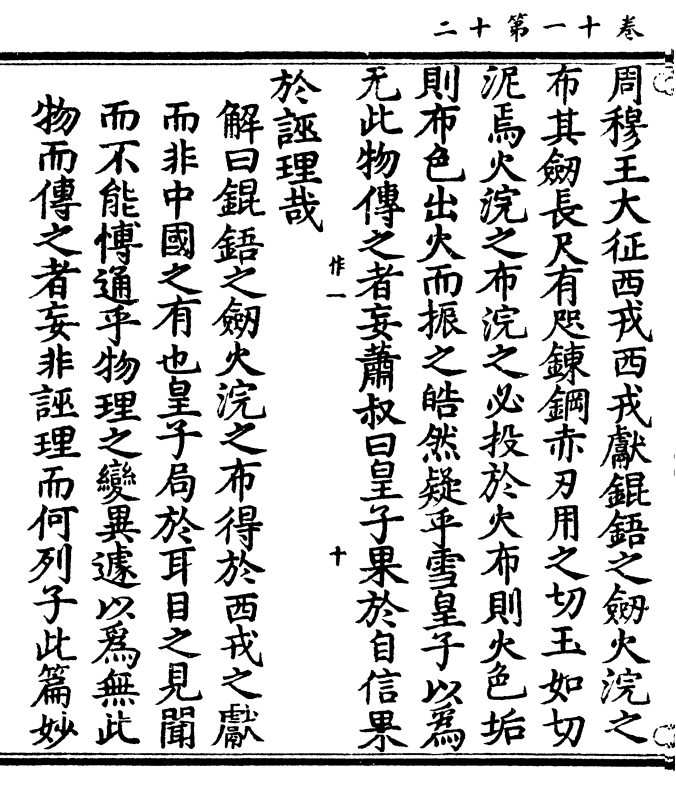 卷十一第十二
周穆王大征西戎西戎獻錕鋙之劒火浣之
布其劒長尺有咫鍊鋼赤刃用之切玉如切
泥焉火浣之布浣之必投於火布則火色垢
則布色出火而振之皓然疑乎雪皇子以爲
无此物傳之者妄蕭叔曰皇子果於自信果
作一
十
於誣理哉
解曰錕鋙之劒火浣之布得於西戎之獻
而非中國之有也皇子局於耳目之見聞
而不能愽通乎物理之變異遽以爲無此
物而傳之者妄非誣理而何列子此篇妙